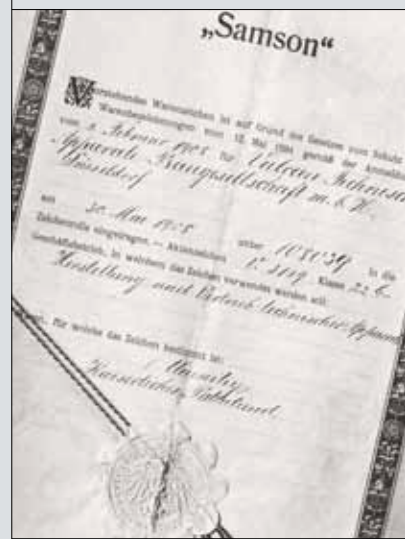 „Samson“
Vorstehendes Warenzeichen ist auf Grund des Gesetzes zum Schutz
Warenbezeichnungen vom 12. Mai 1894 gemäß der Anmeldung
vom 3. Februar 1908 für Vulcan Technische
Apparate Baugesellschaft m. b. H.
Düsseldorf
am 30. Mai 1908 unter 108039 in die
Zeichenrolle eingetragen. — Aktenzeichen Klasse 22 b.
Geschäftsbetrieb, in welchem das Zeichen verwendet werden soll:
Herstellung und Vertrieb technischer
für welche das Zeichen bestimmt ist:
Kaiserliches Patentamt.